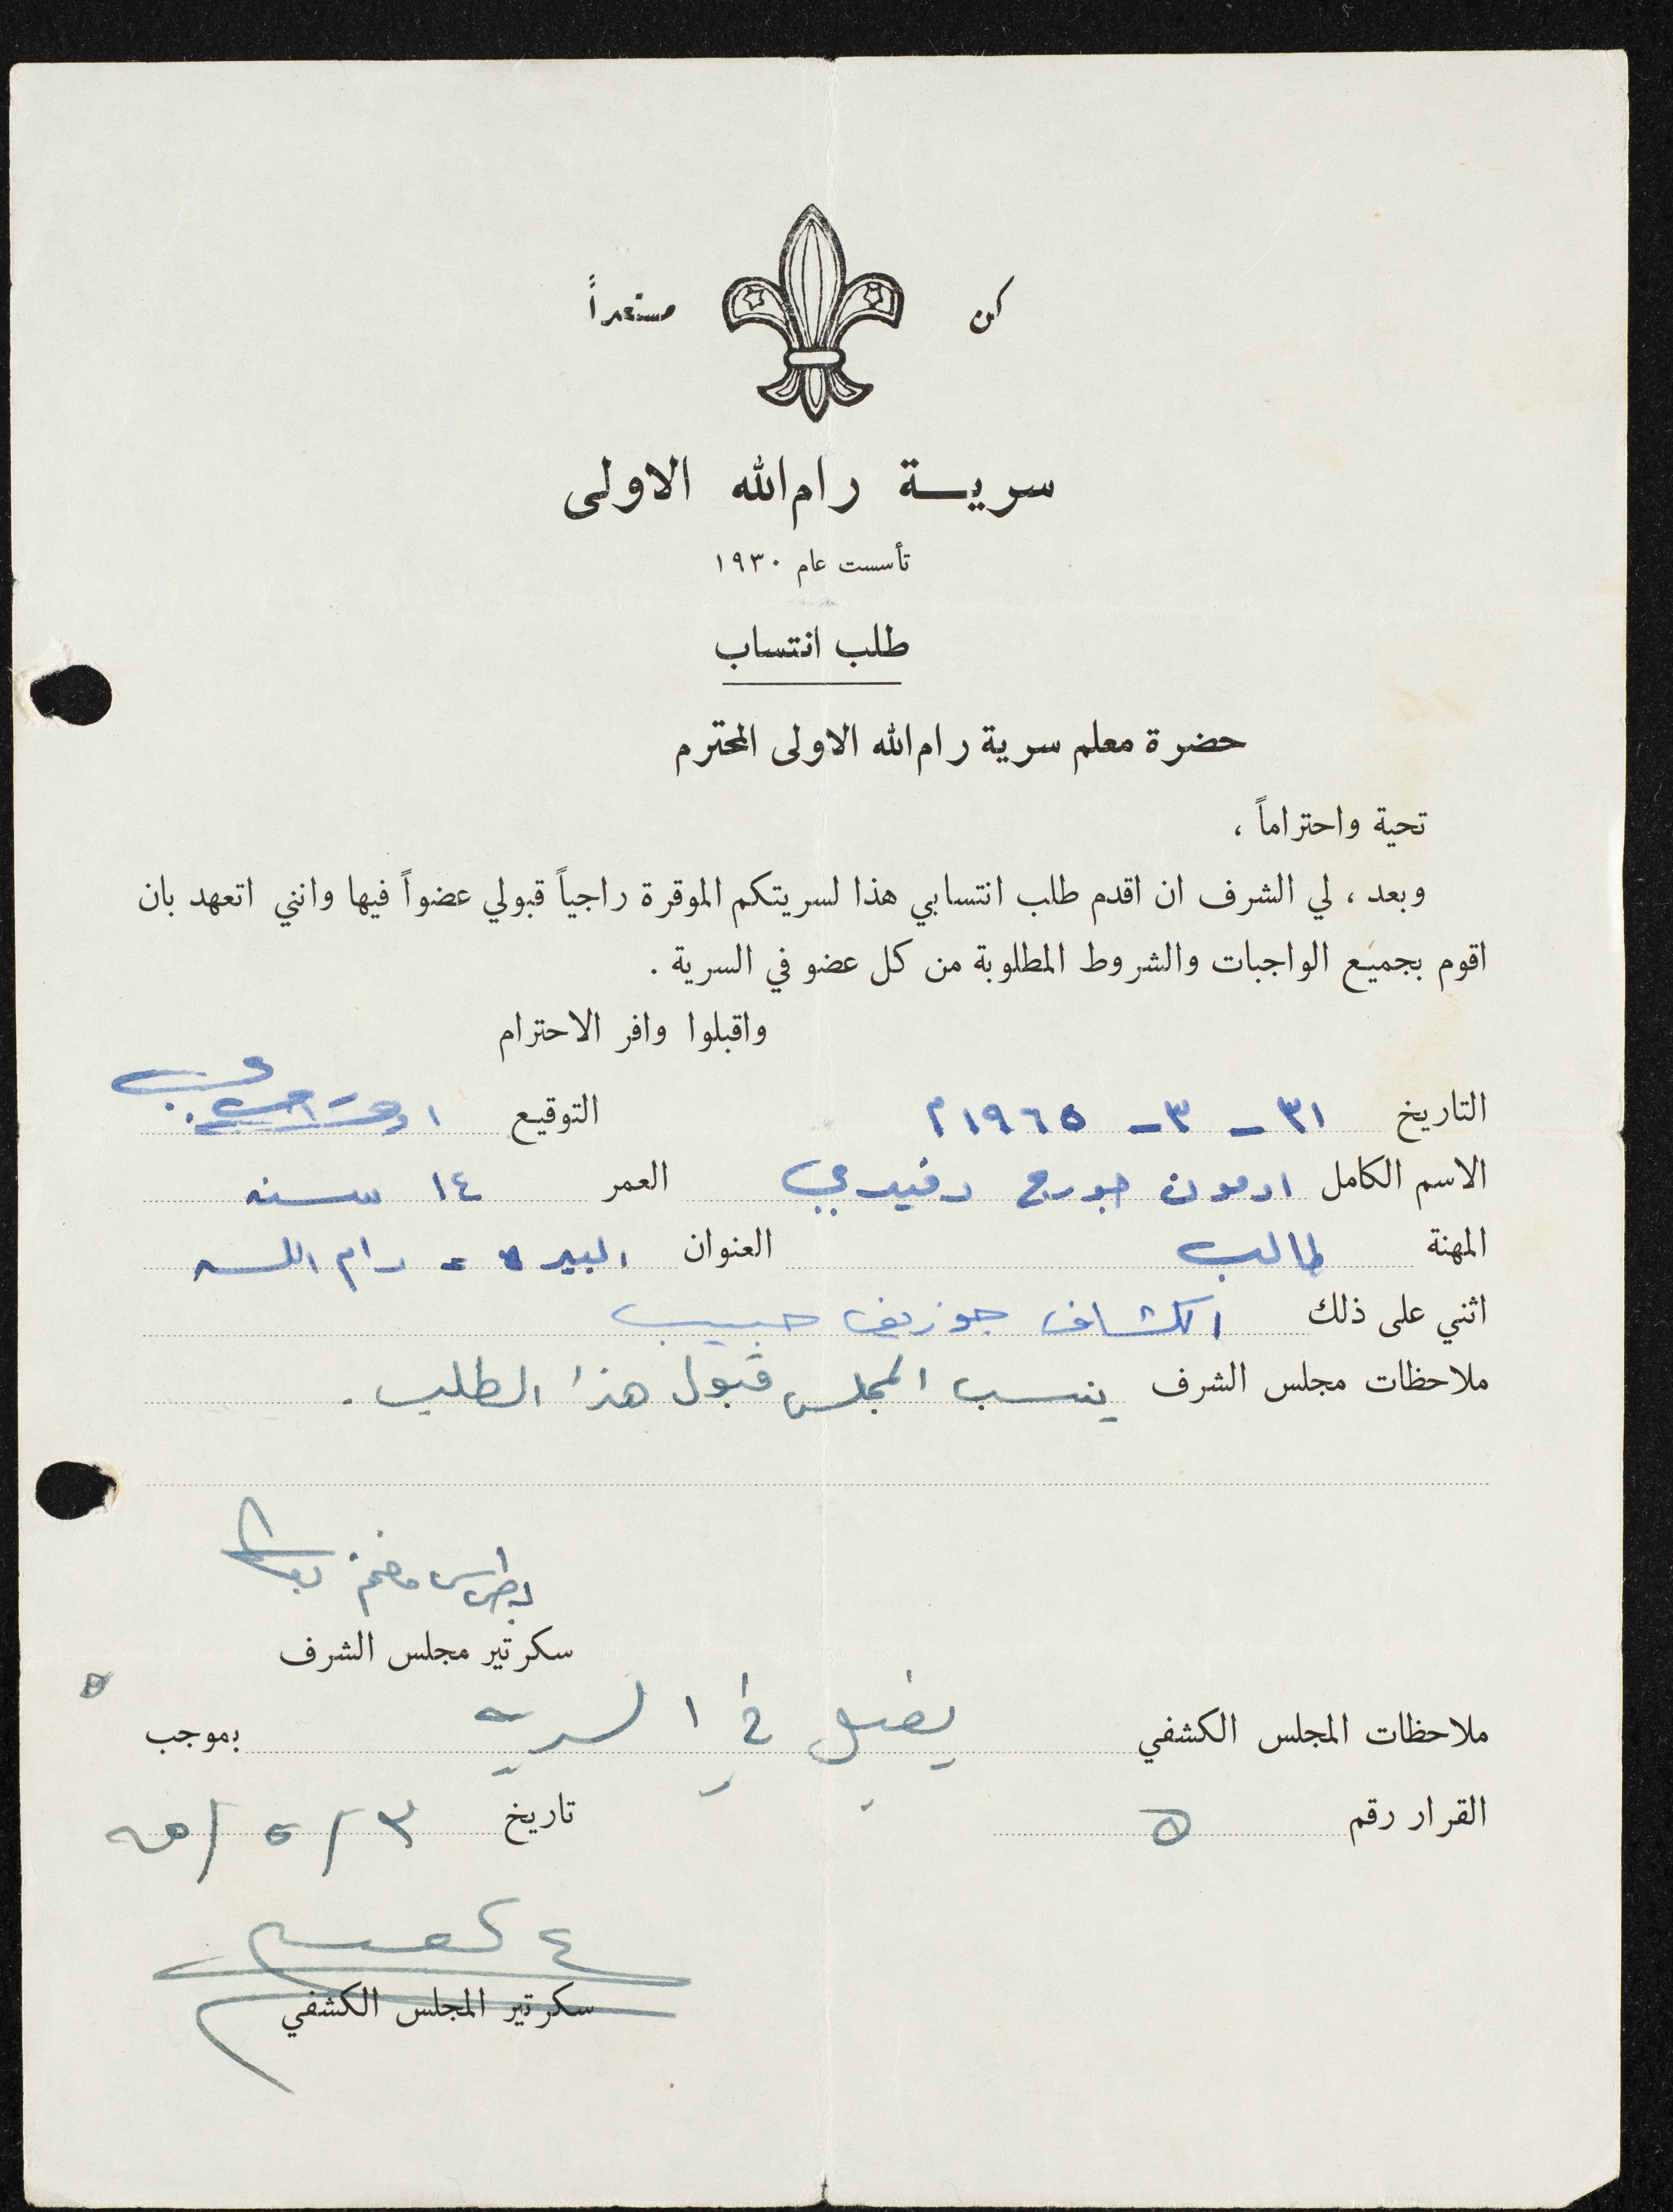 كن مستعداً
سرية رام الله الاولى
تأسست عام ١٩٣٠
طلب انتساب
حضرة معلم سرية رام الله الاولى المحترم
تحية واحتراماً ،
وبعد ، لي الشرف ان اقدم طلب انتسابي هذا لسريتكم الموقرة راجياً قبولي عضواً فيها وانني اتعهد بان
اقوم بجميع الواجبات والشروط المطلوبة من كل عضو في السرية .
واقبلوا وافر الاحترام
التاريخ ٣١ - ٣ - ١٩٦٥ م التوقيع
الاسم الكامل ادمون جورج رفيدي العمر ١٤ سنه
المهنة طالب العنوان البيره - رام الله
اثني على ذلك الكشاف جوزيف حبيب
ملاحظات مجلس الشرف ينسب المجلس قبول هذا الطلب .
بطرس
سكرتير مجلس الشرف
ملاحظات المجلس الكشفي يقبل في السرية بموجب
القرار رقم ٥ تاريخ ٣ / ٥ /
سكرتير المجلس الكشفي